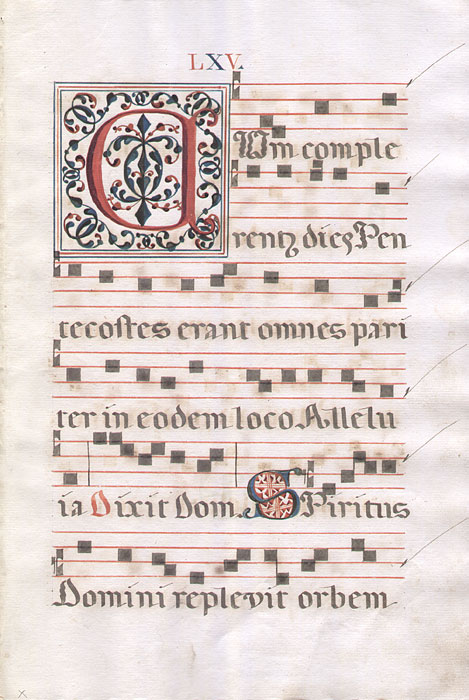 LXV.
CUm comple
rentʒ dies Pen
tecostes erant omnes pari
ter in eodem loco Allelu
ia Dixit Dom. SPiritus
Domini replevit orbem
x